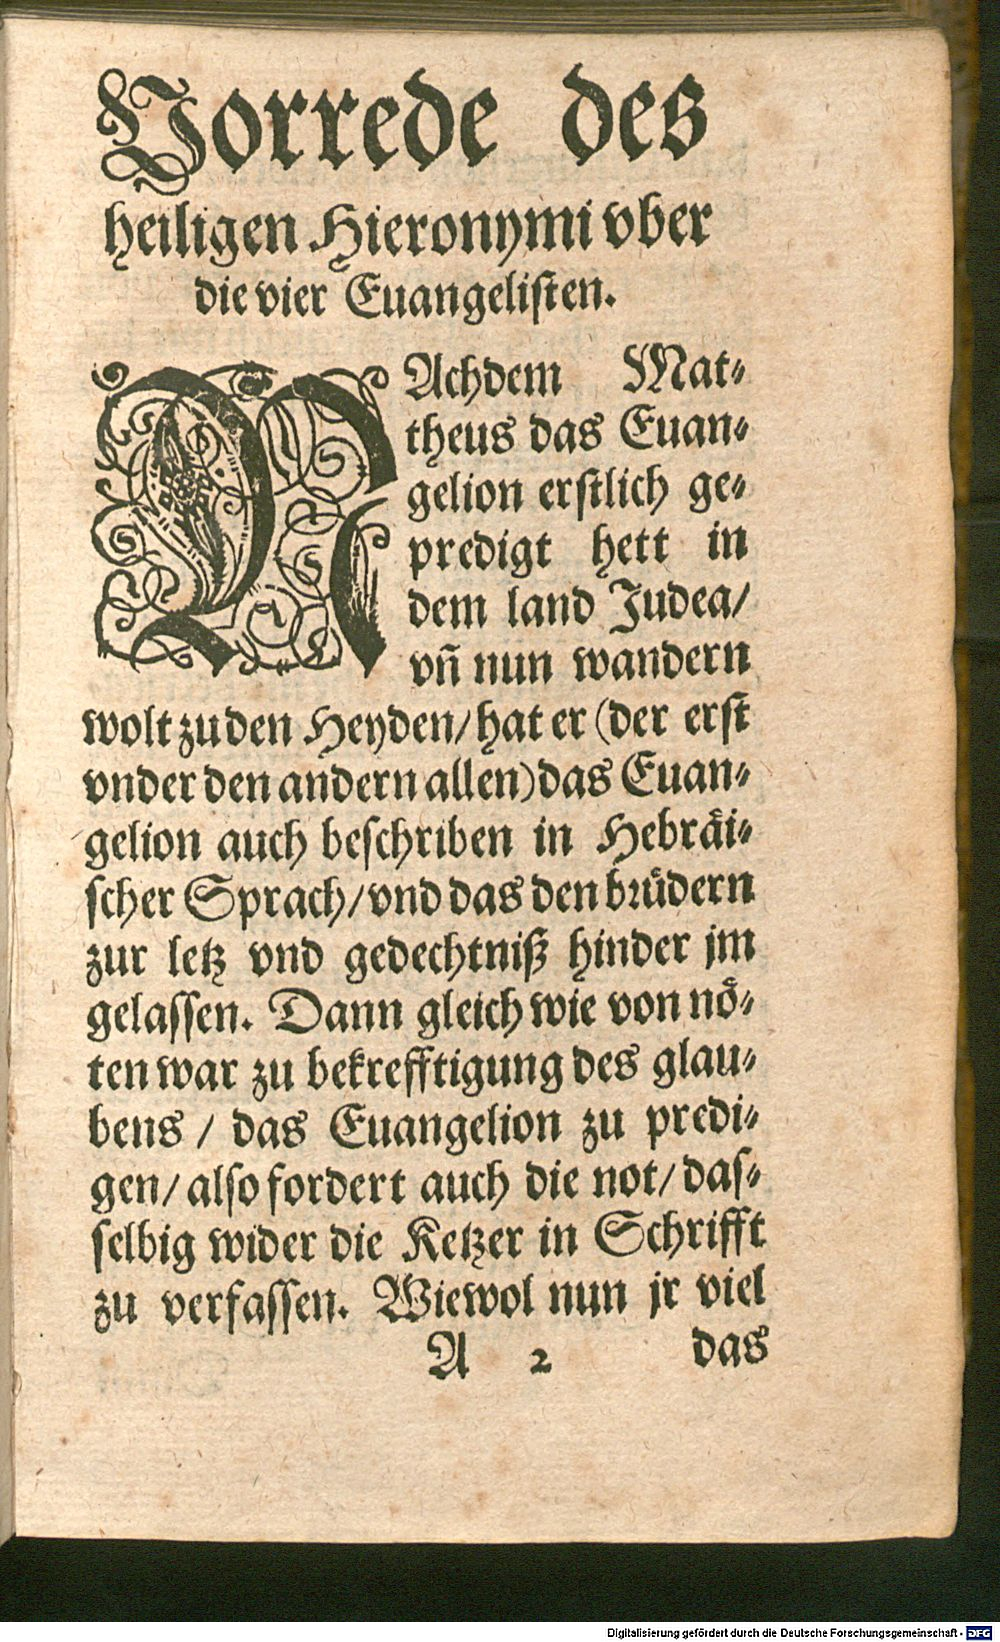 Vorrede des
heiligen Hieronymi vber
die vier Euangelisten.
NAchdem Mat⸗
theus das Euan⸗
gelion erstlich ge⸗
predigt hett in
dem land Judea/
vñ nun wandern
wolt zu den Heyden/ hat er (der erst
vnder den andern allen) das Euan⸗
gelion auch beschriben in Hebräi⸗
scher Sprach/ vnd das den brüdern
zur letz vnd gedechtniß hinder jm
gelassen. Dann gleich wie von nö⸗
ten war zu bekrefftigung des glau⸗
bens / das Euangelion zu predi⸗
gen/ also fordert auch die not/ das⸗
selbig wider die Ketzer in Schrifft
zu verfassen. Wiewol nun jr viel
A 2 das
Digitalisierung gefördert durch die Deutsche Forschungsgemeinschaft - DFG